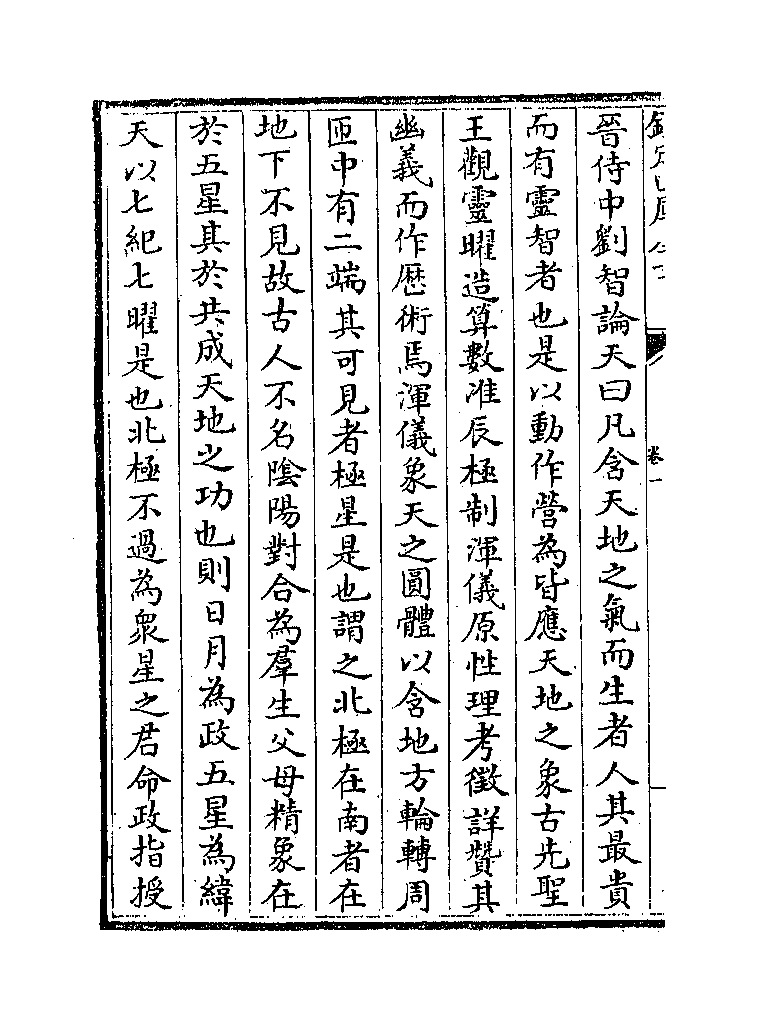 晉侍中劉智論天曰凡含天地之氣而生者人其最貴
而有靈智者也是以動作營為皆應天地之象古先聖
王觀靈曜造算數准辰極制渾儀原性理考徵詳贊其
幽義而作歷術焉渾儀象天之圓體以含地方輪轉周
匝中有二端其可見者極星是也謂之北極在南者在
地下不見故古人不名陰陽對合為羣生父母精象在
於五星其於共成天地之功也則日月為政五星為緯
天以七紀七曜是也北極不過為衆星之君命政指授
卷一